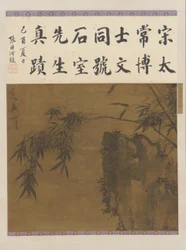 宋太
常博
士文
同號
石室
先生
真蹟
己酉夏日